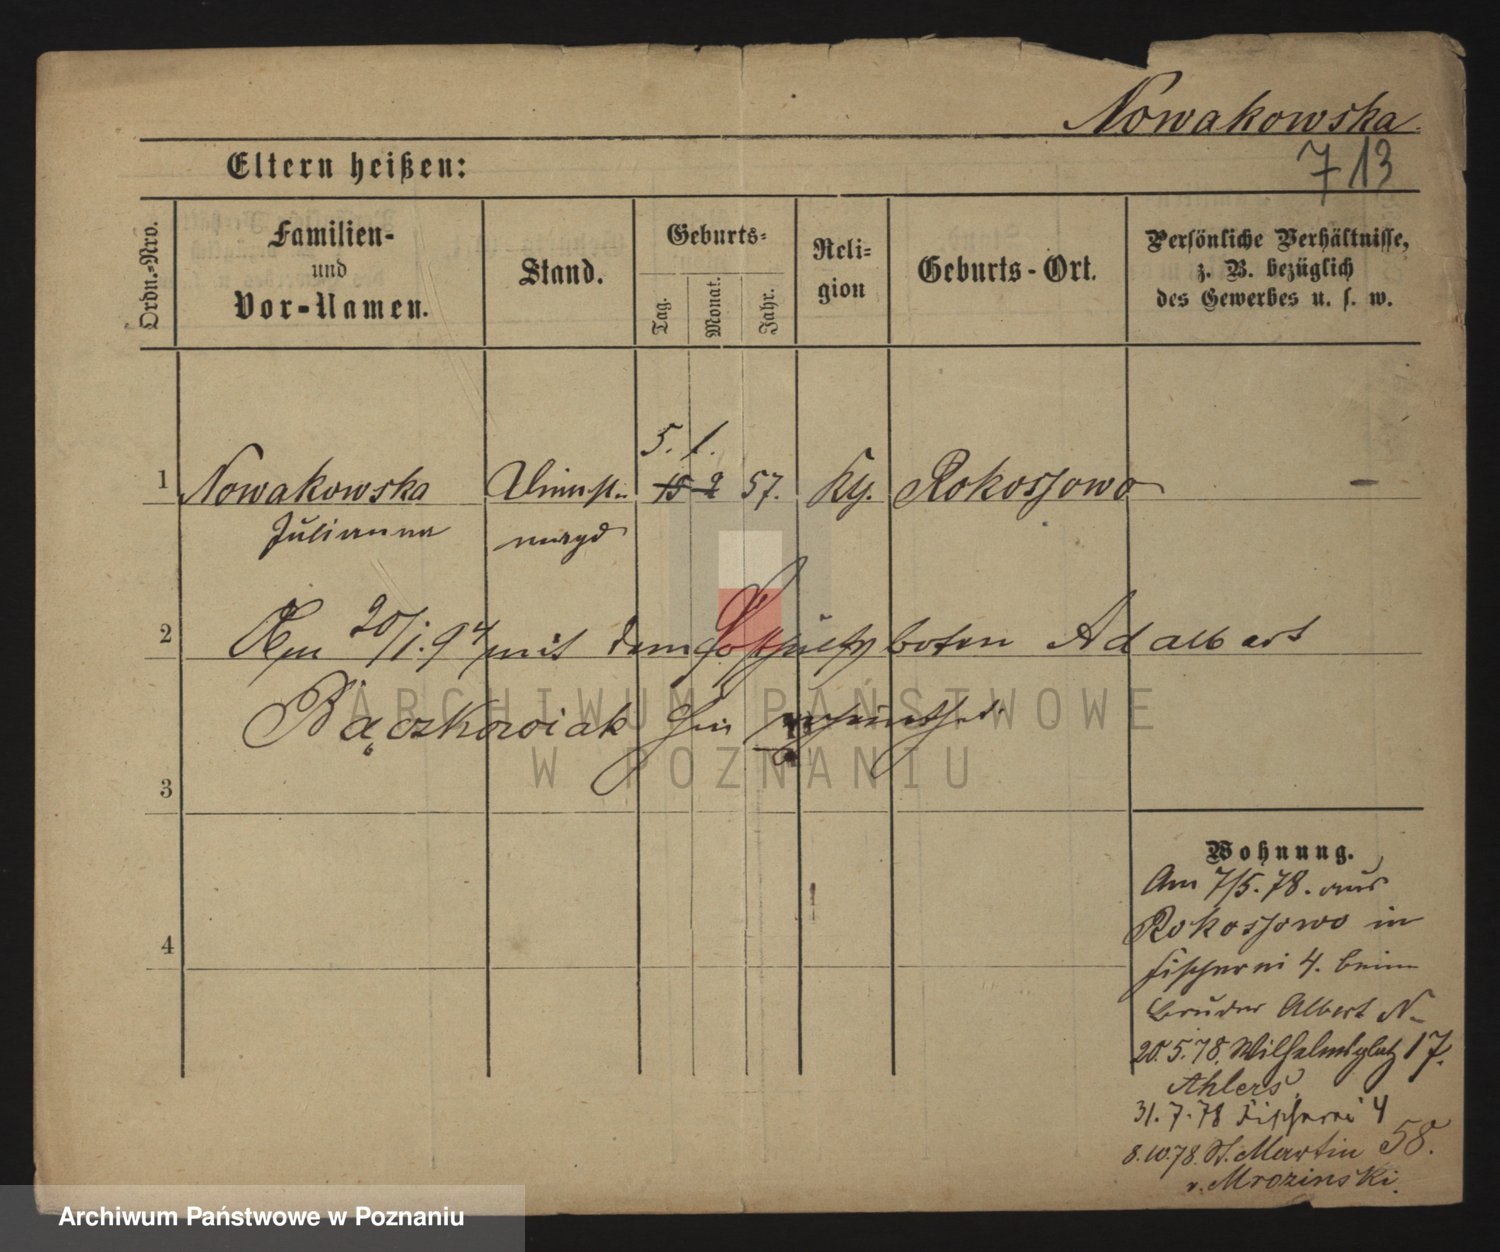 Nowakowska.
713
Eltern heißen:
Ordn.-Nro.
Familien-
und
Vor-Namen.
Stand.
Geburts-
Tag.
Monat.
Jahr.
Reli-
gion
Geburts-Ort.
Persönliche Verhältnisse,
z. B. bezüglich
des Gewerbes u. s. w.
5. 1.
1 Nowakowska Dienst- 15 2 57. kth. Rokossowo —
Julianna magd
2 Am 20/1. 94 mit dem Adalbert
Bączkowiak hier
3
Wohnung.
Am 7/5. 78. aus
Rokossowo in
4
Fischerei 4. beim
Bruder Albert N.
20.5.78. Wilhelmsplatz 17.
Ahlers
31.7.78 Fischerei 4
8.10.78. St. Martin 58.
v. Mrozinski.
ARCHIWUM PAŃSTWOWE
W POZNANIU
Archiwum Państwowe w Poznaniu